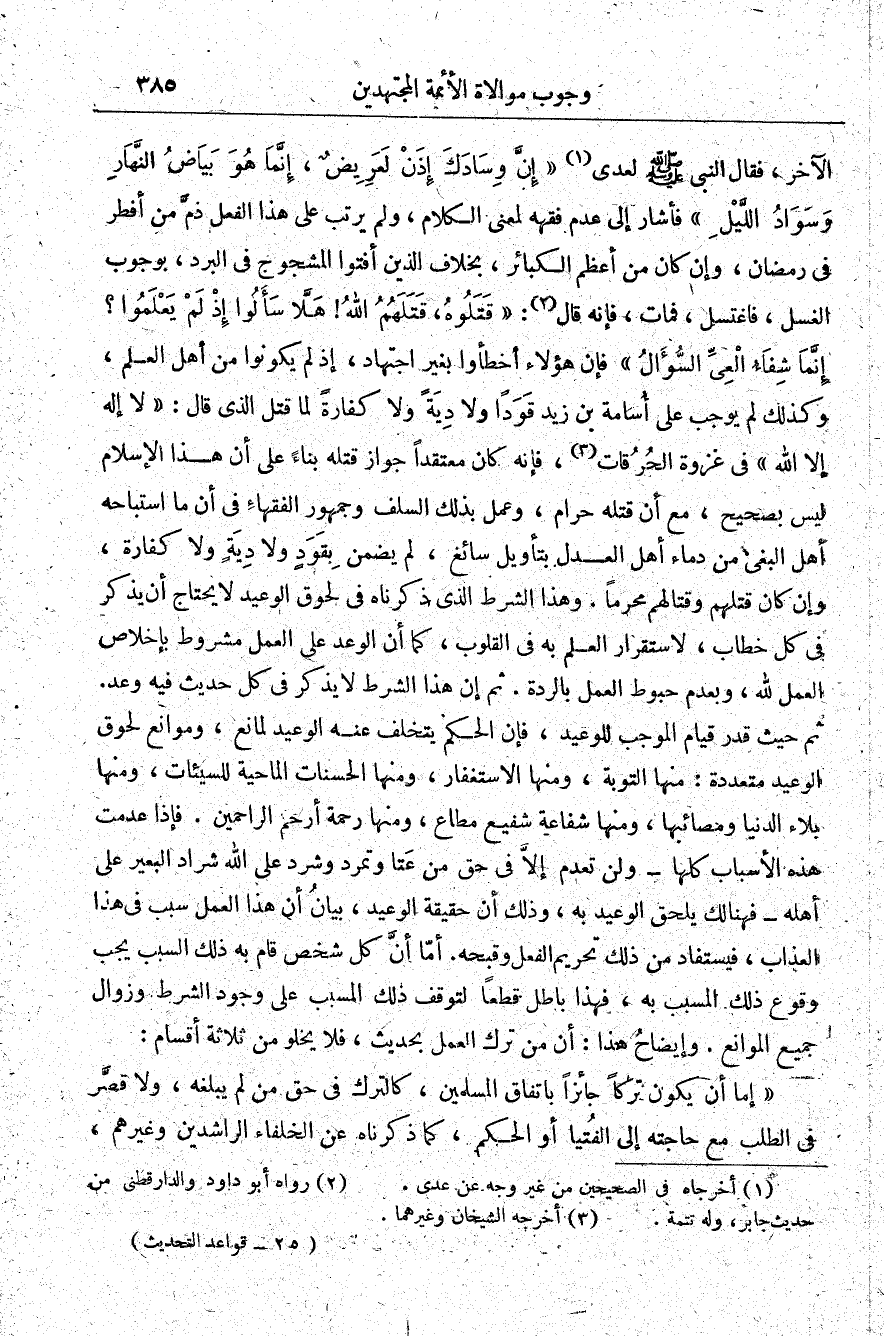 وجوب موالاة الأئمة المجتهدين ٣٨٥
الآخر ، فقال النبى ﷺ لعدى (١) « إِنَّ وِسَادَكَ إِذَنْ لَعَرِيضٌ ، إِنَّمَا هُوَ بَيَاضُ النَّهَارِ
وَسَوَادُ اللَّيْلِ » فأشار إلى عدم فقهه لمعنى الكلام ، ولم يرتب على هذا الفعل ذمَّ من أفطر
فى رمضان ، وإن كان من أعظم الكبائر ، بخلاف الذين أفتوا المشجوج فى البرد ، بوجوب
الغسل ، فاغتسل ، فمات ، فإنه قال (٢) : « قَتَلُوهُ ، قَتَلَهُمُ اللهُ! هَلَّا سَأَلُوا إِذْ لَمْ يَعْلَمُوا ؟
إِنَّمَا شِفَاءُ الْعِىِّ السُّؤَالُ » فإن هؤلاء أخطأوا بغير اجتهاد ، إذ لم يكونوا من أهل العلم ،
وكذلك لم يوجب على أُسامة بن زيد قَوَدًا ولا دِيَةً ولا كفارةً لما قتل الذى قال : « لا إله
إلا الله » فى غزوة الحُرُقات (٣) ، فإنه كان معتقداً جواز قتله بناءً على أن هـذا الإسلام
ليس بصحيح ، مع أن قتله حرام ، وعمل بذلك السلف وجمهور الفقهاءِ فى أن ما استباحه
أهل البغى من دماء أهل العـدل بتأويل سائغ ، لم يضمن بِقَوَدٍ ولا دِيَةٍ ولا كفارة ،
وإن كان قتلهم وقتالهم محرماً . وهذا الشرط الذى ذكرناه فى لحوق الوعيد لا يحتاج أن يذكر
فى كل خطاب ، لاستقرار العـلم به فى القلوب ، كما أن الوعد على العمل مشروط بإخلاص
العمل لله ، وبعدم حبوط العمل بالردة . ثم إن هذا الشرط لا يذكر فى كل حديث فيه وعد .
ثم حيث قدر قيام الموجب للوعيد ، فإن الحكم يتخلف عنـه الوعيد لمانع ، وموانع لحوق
الوعيد متعددة : منها التوبة ، ومنها الاستغفار ، ومنها الحسنات الماحية للسيئات ، ومنها
بلاء الدنيا ومصائبها ، ومنها شفاعة شفيع مطاع ، ومنها رحمة أرحم الراحمين . فإذا عدمت
هذه الأسباب كلها – ولن تعدم إلاَّ فى حق من عَتا وتمرد وشرد على الله شراد البعير على
أهله – فهنالك يلحق الوعيد به ، وذلك أن حقيقة الوعيد ، بيانُ أن هذا العمل سبب فى هذا
العذاب ، فيستفاد من ذلك تحريم الفعل وقبحه. أمّا أنَّ كل شخص قام به ذلك السبب يجب
وقوع ذلك المسبب به ، فهذا باطل قطعاً لتوقف ذلك المسبب على وجود الشرط وزوال
جميع الموانع . وإيضاحُ هذا : أن من ترك العمل بحديث ، فلا يخلو من ثلاثة أقسام :
« إما أن يكون تركاً جائزاً باتفاق المسلمين ، كالترك فى حق من لم يبلغه ، ولا قصَّر
فى الطلب مع حاجته إلى الفُتيا أو الحكم ، كما ذكرناه عن الخلفاء الراشدين وغيرهم ،
(١) أخرجاه فى الصحيحين من غير وجه عن عدى . (٢) رواه أبو داود والدارقطنى من
حديث جابر ، وله تتمة . (٣) أخرجه الشيخان وغيرهما .
( ٢٥ – قواعد التحديث )